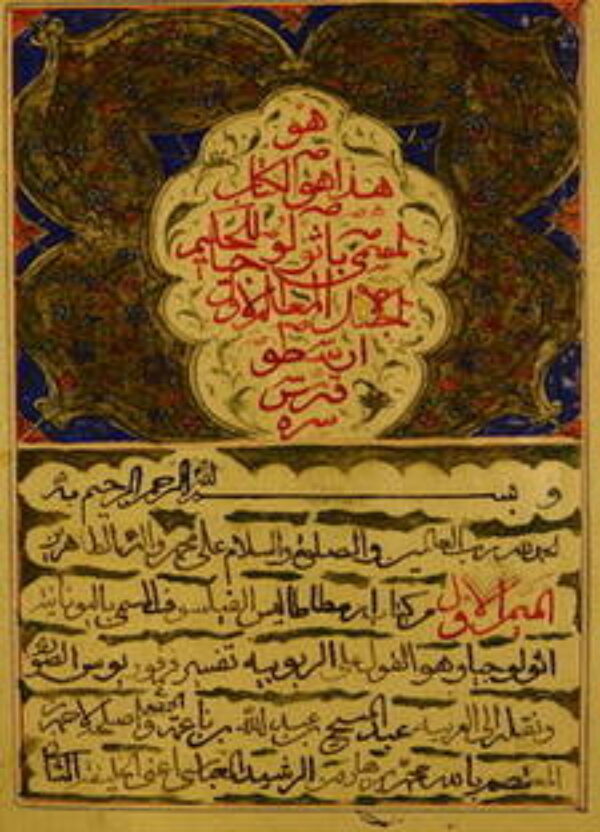 هو
هذا هو الكتاب
المسمى باثولوجيا للحكيم
الجليل المعلم الاول
ارسطو
قدس
سره
بسم الله الرحمن الرحيم
الحمد لله رب العالمين والصلوة والسلام على محمد واله الطاهرين
الميمر الاول من كتاب ارسطاطاليس الفيلسوف المسمى باليونانية
اثولوجيا وهو القول على الربوبيه تفسير فرفوريوس الصوري
ونقله الى العربيه عبد المسيح بن عبد الله بن ناعمة الحمصي واصلحه لاحمد بن
المعتصم بالله